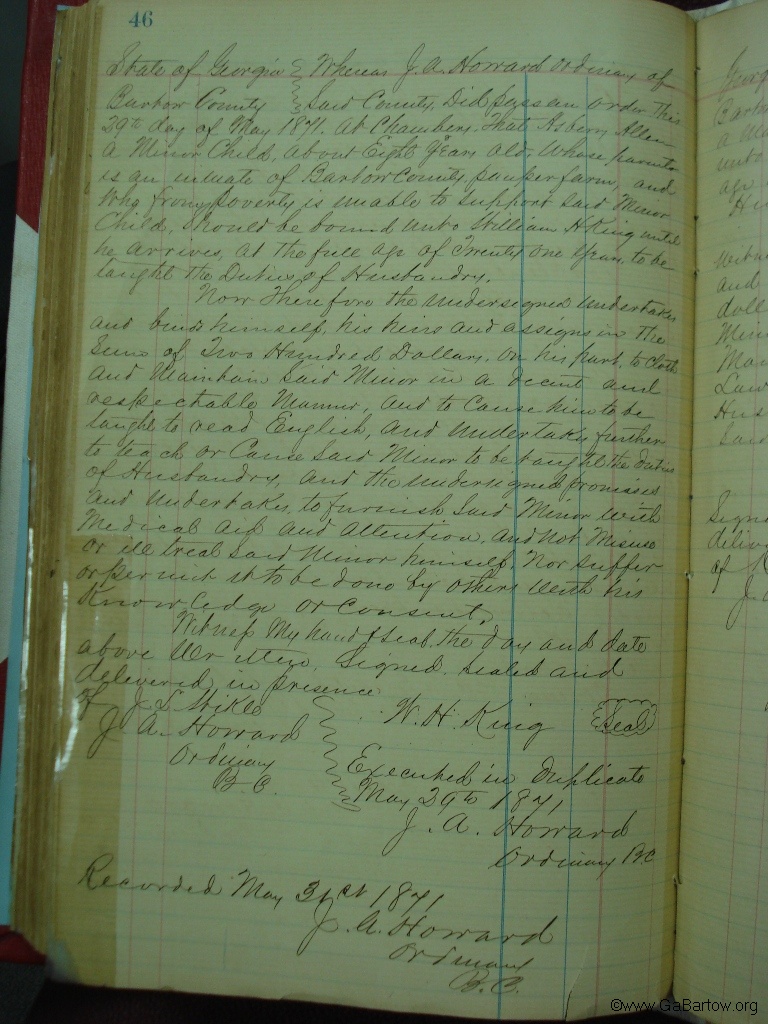 46
State of Georgia Whereas J. A. Howard Ordinary of
Bartow County Said County, Did pass an order this
29th day of May 1871. At Chambers. That Asbery Allen
a Minor Child, about Eight Years old, Whose parents
is an inmate of Bartow County pauper farm, and
Who from poverty is unable to support said Minor
Child, should be bound unto William H King until
he arrives, at the full age of Twenty one Years, to be
taught the Duties of Husbandry.
Now Therefore the undersigned undertakes
and binds himself, his heirs and assigns in the
Sum of Two Hundred Dollars, on his part, to Cloth
and Maintain said Minor in a decent and
respectable Manner, and to Cause him to be
taught to read English, and undertakes further
to teach or Cause said Minor to be taught the duties
of Husbandry, and the undersigned promises
and undertakes, to furnish said Minor with
Medical aid and attention, and not Misuse
or ill treat said Minor himself, Nor suffer
or permit it to be done by others with his
Knowledge or consent,
Witness My hand & seal, the day and date
above Written, Signed, sealed and
delivered in presence
of J. L. Wikle W. H. King Seal
J A. Howard
Ordinary
B. C.
Executed in Duplicate
May 29th 1871
J. A. Howard
Ordinary BC
Recorded May 31st 1871
J. A. Howard
Ordinary
B. C.
©www.GaBartow.org